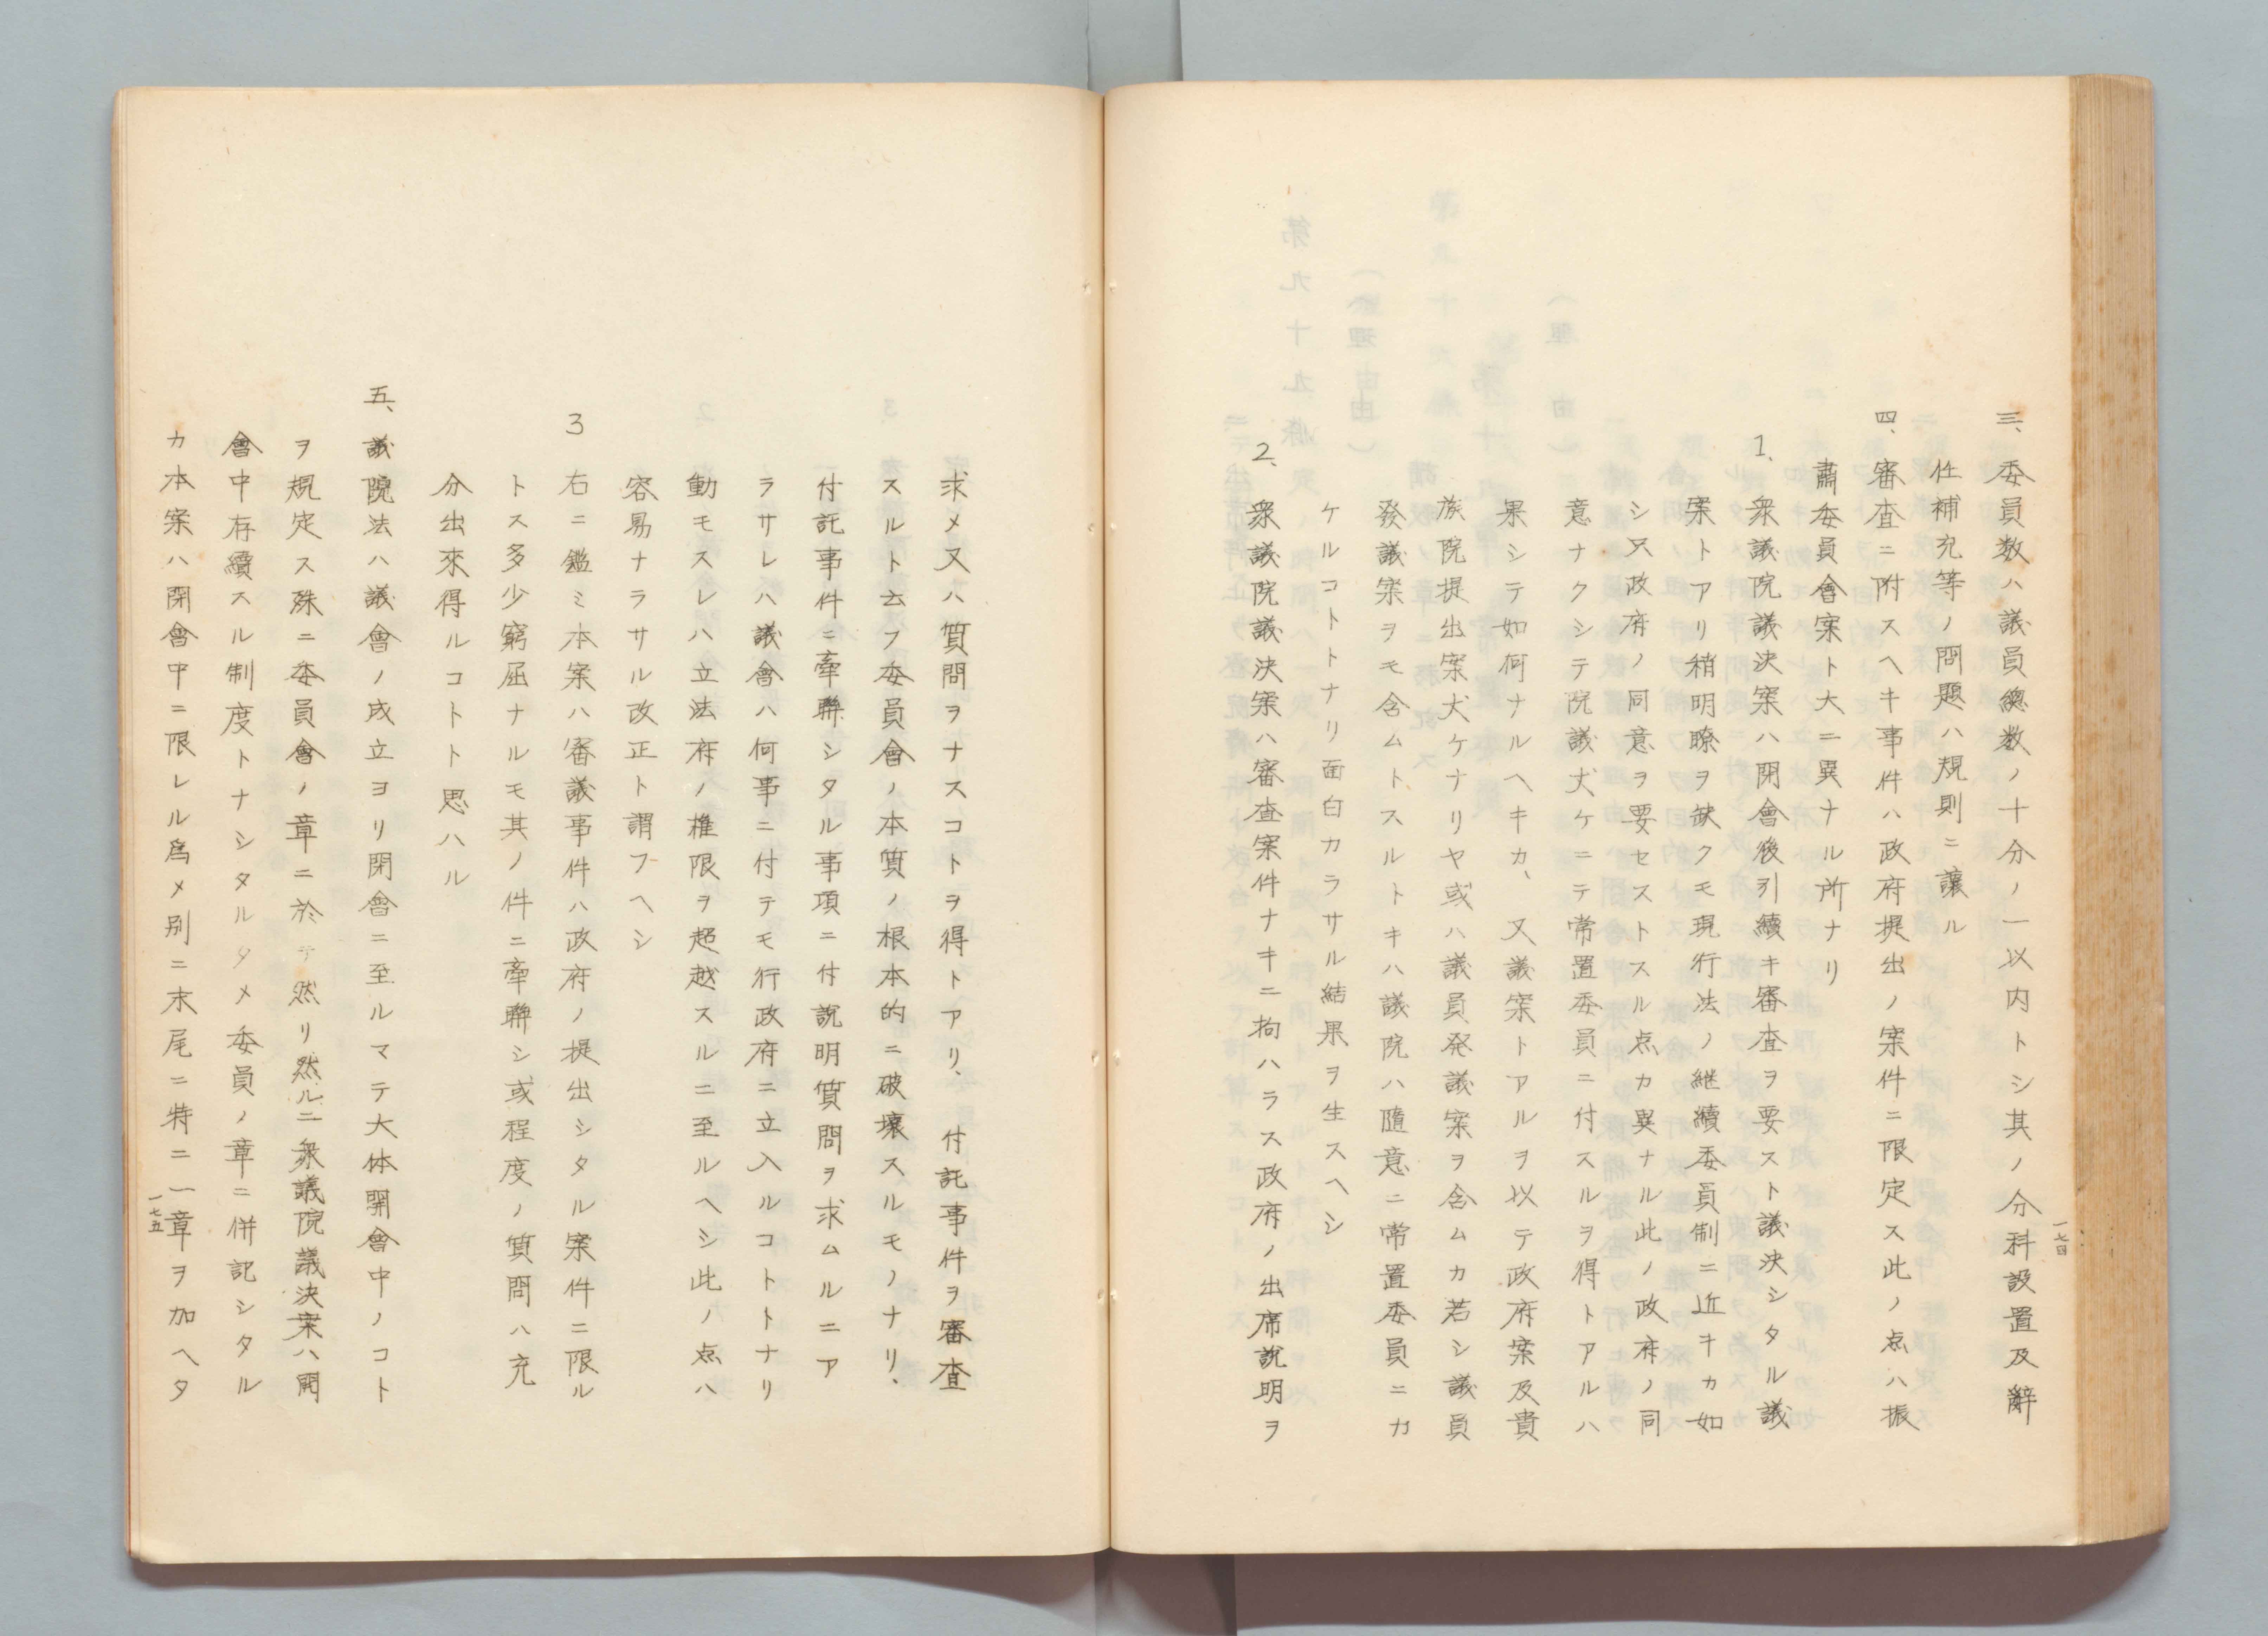 三、委員数ハ議員總数ノ十分ノ一以内トシ其ノ分科設置及辭
任補充等ノ問題ハ規則ニ讓ル
四、審査ニ附スヘキ事件ハ政府提出ノ案件ニ限定ス此ノ点ハ振
肅委員會案ト大ニ異ナル所ナリ
1、衆議院議決案ハ閉會後引續キ審査ヲ要スト議決シタル議
案トアリ稍明瞭ヲ缺クモ現行法ノ継續委員制ニ近キカ如
シ只政府ノ同意ヲ要セストスル点カ異ナル此ノ政府ノ同
意ナクシテ院議丈ケニテ常置委員ニ付スルヲ得トアルハ
果シテ如何ナルヘキカ、又議案トアルヲ以テ政府案及貴
族院提出案丈ケナリヤ或ハ議員発議案ヲ含ムカ若シ議員
發議案ヲモ含ムトスルトキハ議院ハ隨意ニ常置委員ニカ
ケルコトトナリ面白カラサル結果ヲ生スヘシ
2、衆議院議決案ハ審査案件ナキニ拘ハラス政府ノ出席說明ヲ
一七四
求メ又ハ質問ヲナスコトヲ得トアリ、付託事件ヲ審査
スルト云フ委員會ノ本質ノ根本的ニ破壞スルモノナリ、
付託事件ニ牽聯シタル事項ニ付說明質問ヲ求ムルニア
ラサレハ議會ハ何事ニ付テモ行政府ニ立入ルコトトナリ
動モスレハ立法府ノ権限ヲ超越スルニ至ルヘシ此ノ点ハ
容易ナラサル改正ト謂フヘシ
3 右ニ鑑ミ本案ハ審議事件ハ政府ノ提出シタル案件ニ限ル
トス多少窮屈ナルモ其ノ件ニ牽聯シ或程度ノ質問ハ充
分出來得ルコトト思ハル
五、議院法ハ議會ノ成立ヨリ閉會ニ至ルマテ大体開會中ノコト
ヲ規定ス殊ニ委員會ノ章ニ於テ然リ然ルニ衆議院議決案ハ開
會中存續スル制度トナシタルタメ委員ノ章ニ併記シタル
カ本案ハ閉會中ニ限レル爲メ別ニ末尾ニ特ニ一章ヲ加ヘタ
一七五